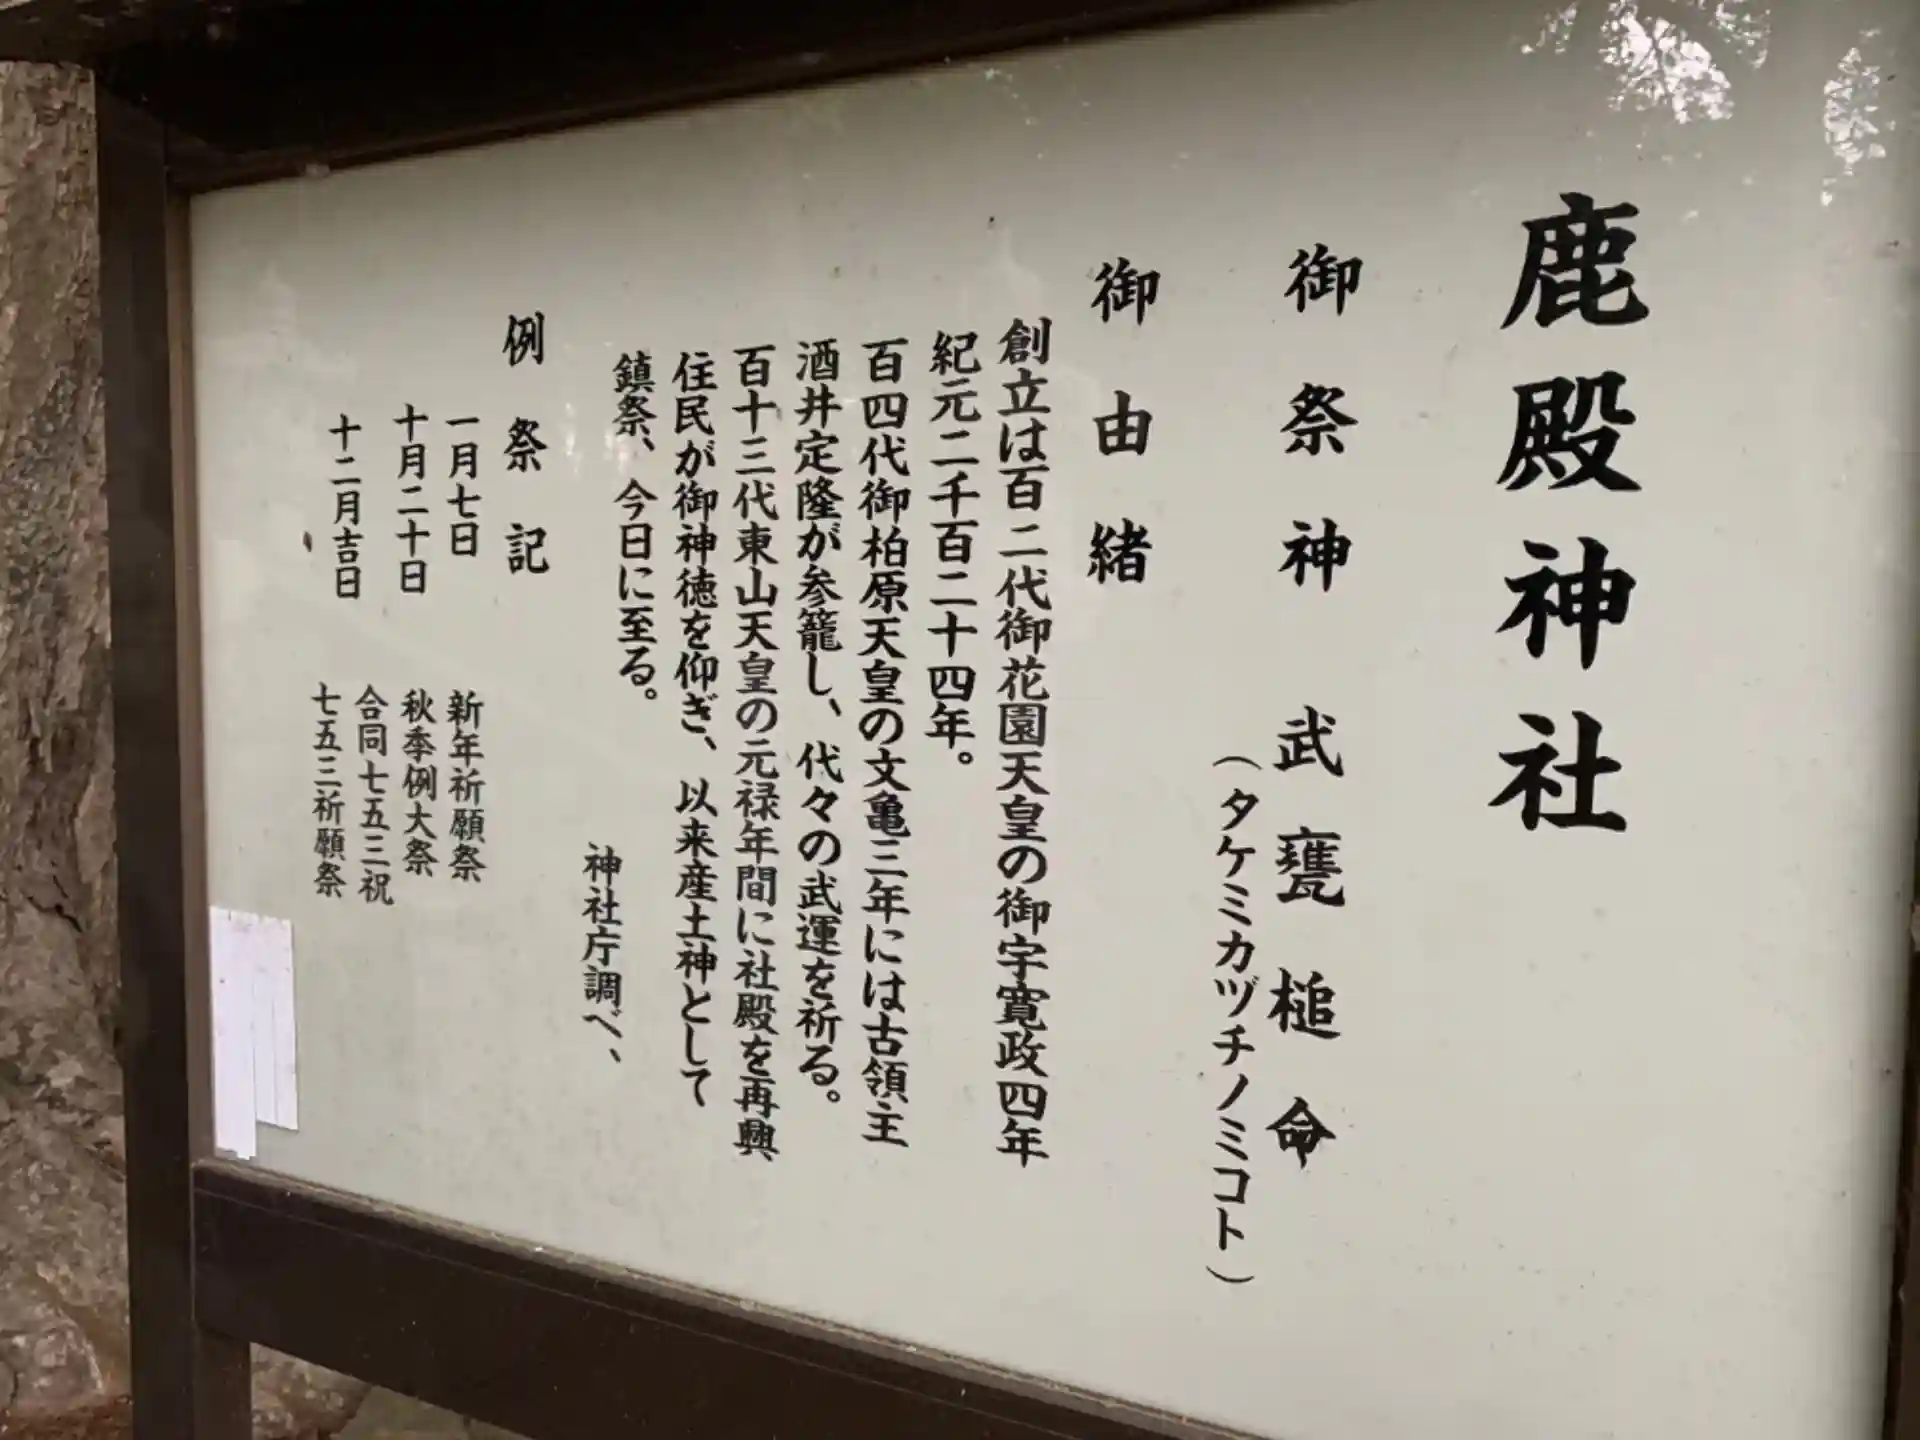 鹿殿神社
御祭神　武甕槌命
（タケミカヅチノミコト）
御由緒
創立は百二代御花園天皇の御宇寛政四年
紀元二千百二十四年。
百四代御柏原天皇の文亀三年には古領主
酒井定隆が参籠し、代々の武運を祈る。
百十三代東山天皇の元禄年間に社殿を再興
住民が御神徳を仰ぎ、以来産土神として
鎮祭、今日に至る。
神社庁調べ、
例祭記
一月七日　新年祈願祭
十月二十日　秋季例大祭
合同七五三祝
十二月吉日　七五三祈願祭